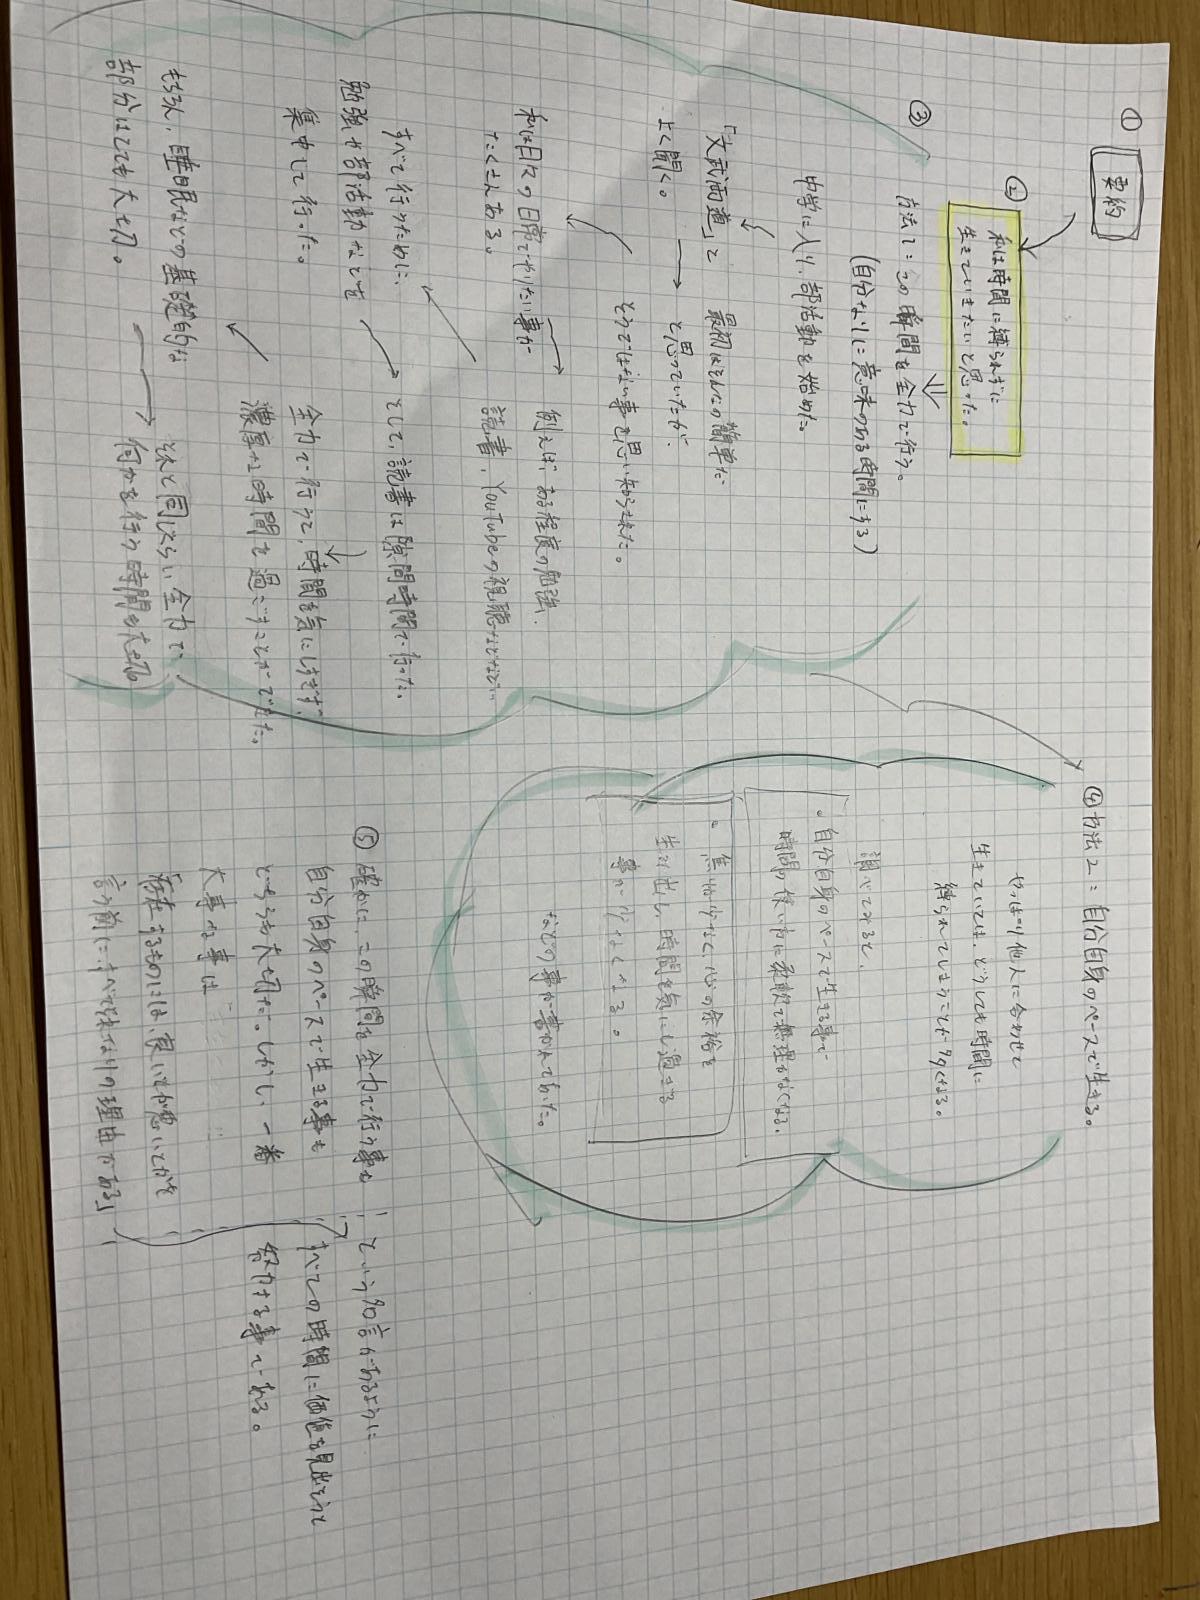 ①
要約
② 私は時間に縛られずに
生きていきたいと思った。
③
方法1:この瞬間を全力で行う。
(自分なりに意味のある時間にする)
中学に入り、部活動を始めた。
「文武両道」と
よく聞く。
最初はそんなの簡単だ
と思っていたが、
そうではない事を思い知らされた。
私は日々の日常でやりたい事が
たくさんある。
例えば、ある程度の勉強、
読書、YouTubeの視聴などなど…
すべて行うために、
勉強や部活動などを
集中して行った。
そして、読書は隙間時間で行った。
全力で行うと、時間を気にせず、
濃厚な時間を過ごすことができた。
もちろん、睡眠などの基礎的な
部分はとても大切。
それと同じぐらい、全力で
何かを行う時間も大切
④ 方法2:自分自身のペースで生きる。
やっぱり他人に合わせて
生きていては、どうしても時間に
縛られてしまうことが多くなる。
調べてみると、
・自分自身のペースで生きる事で
時間の使い方に柔軟で無理がなくなる。
・焦りが少なく、心の余裕を
生み出し、時間を気にし過ぎる
事が少なくなる。
などの事が書かれていた。
⑤ 確かに、この瞬間を全力で行う事も
自分自身のペースで生きる事も
どちらも大切だ。しかし、一番
大事な事は
「存在するものには、良いとか悪いとかを
言う前に、すべてそれなりの理由がある」
という名言があるように
すべての時間に価値を見出そうと
努力する事である。